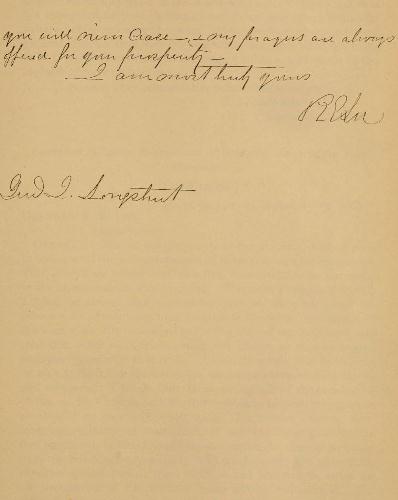 you will never cease — & my prayers are always
offered for your prosperity —
— I am most truly yours
R E Lee
Genl J. Longstreet